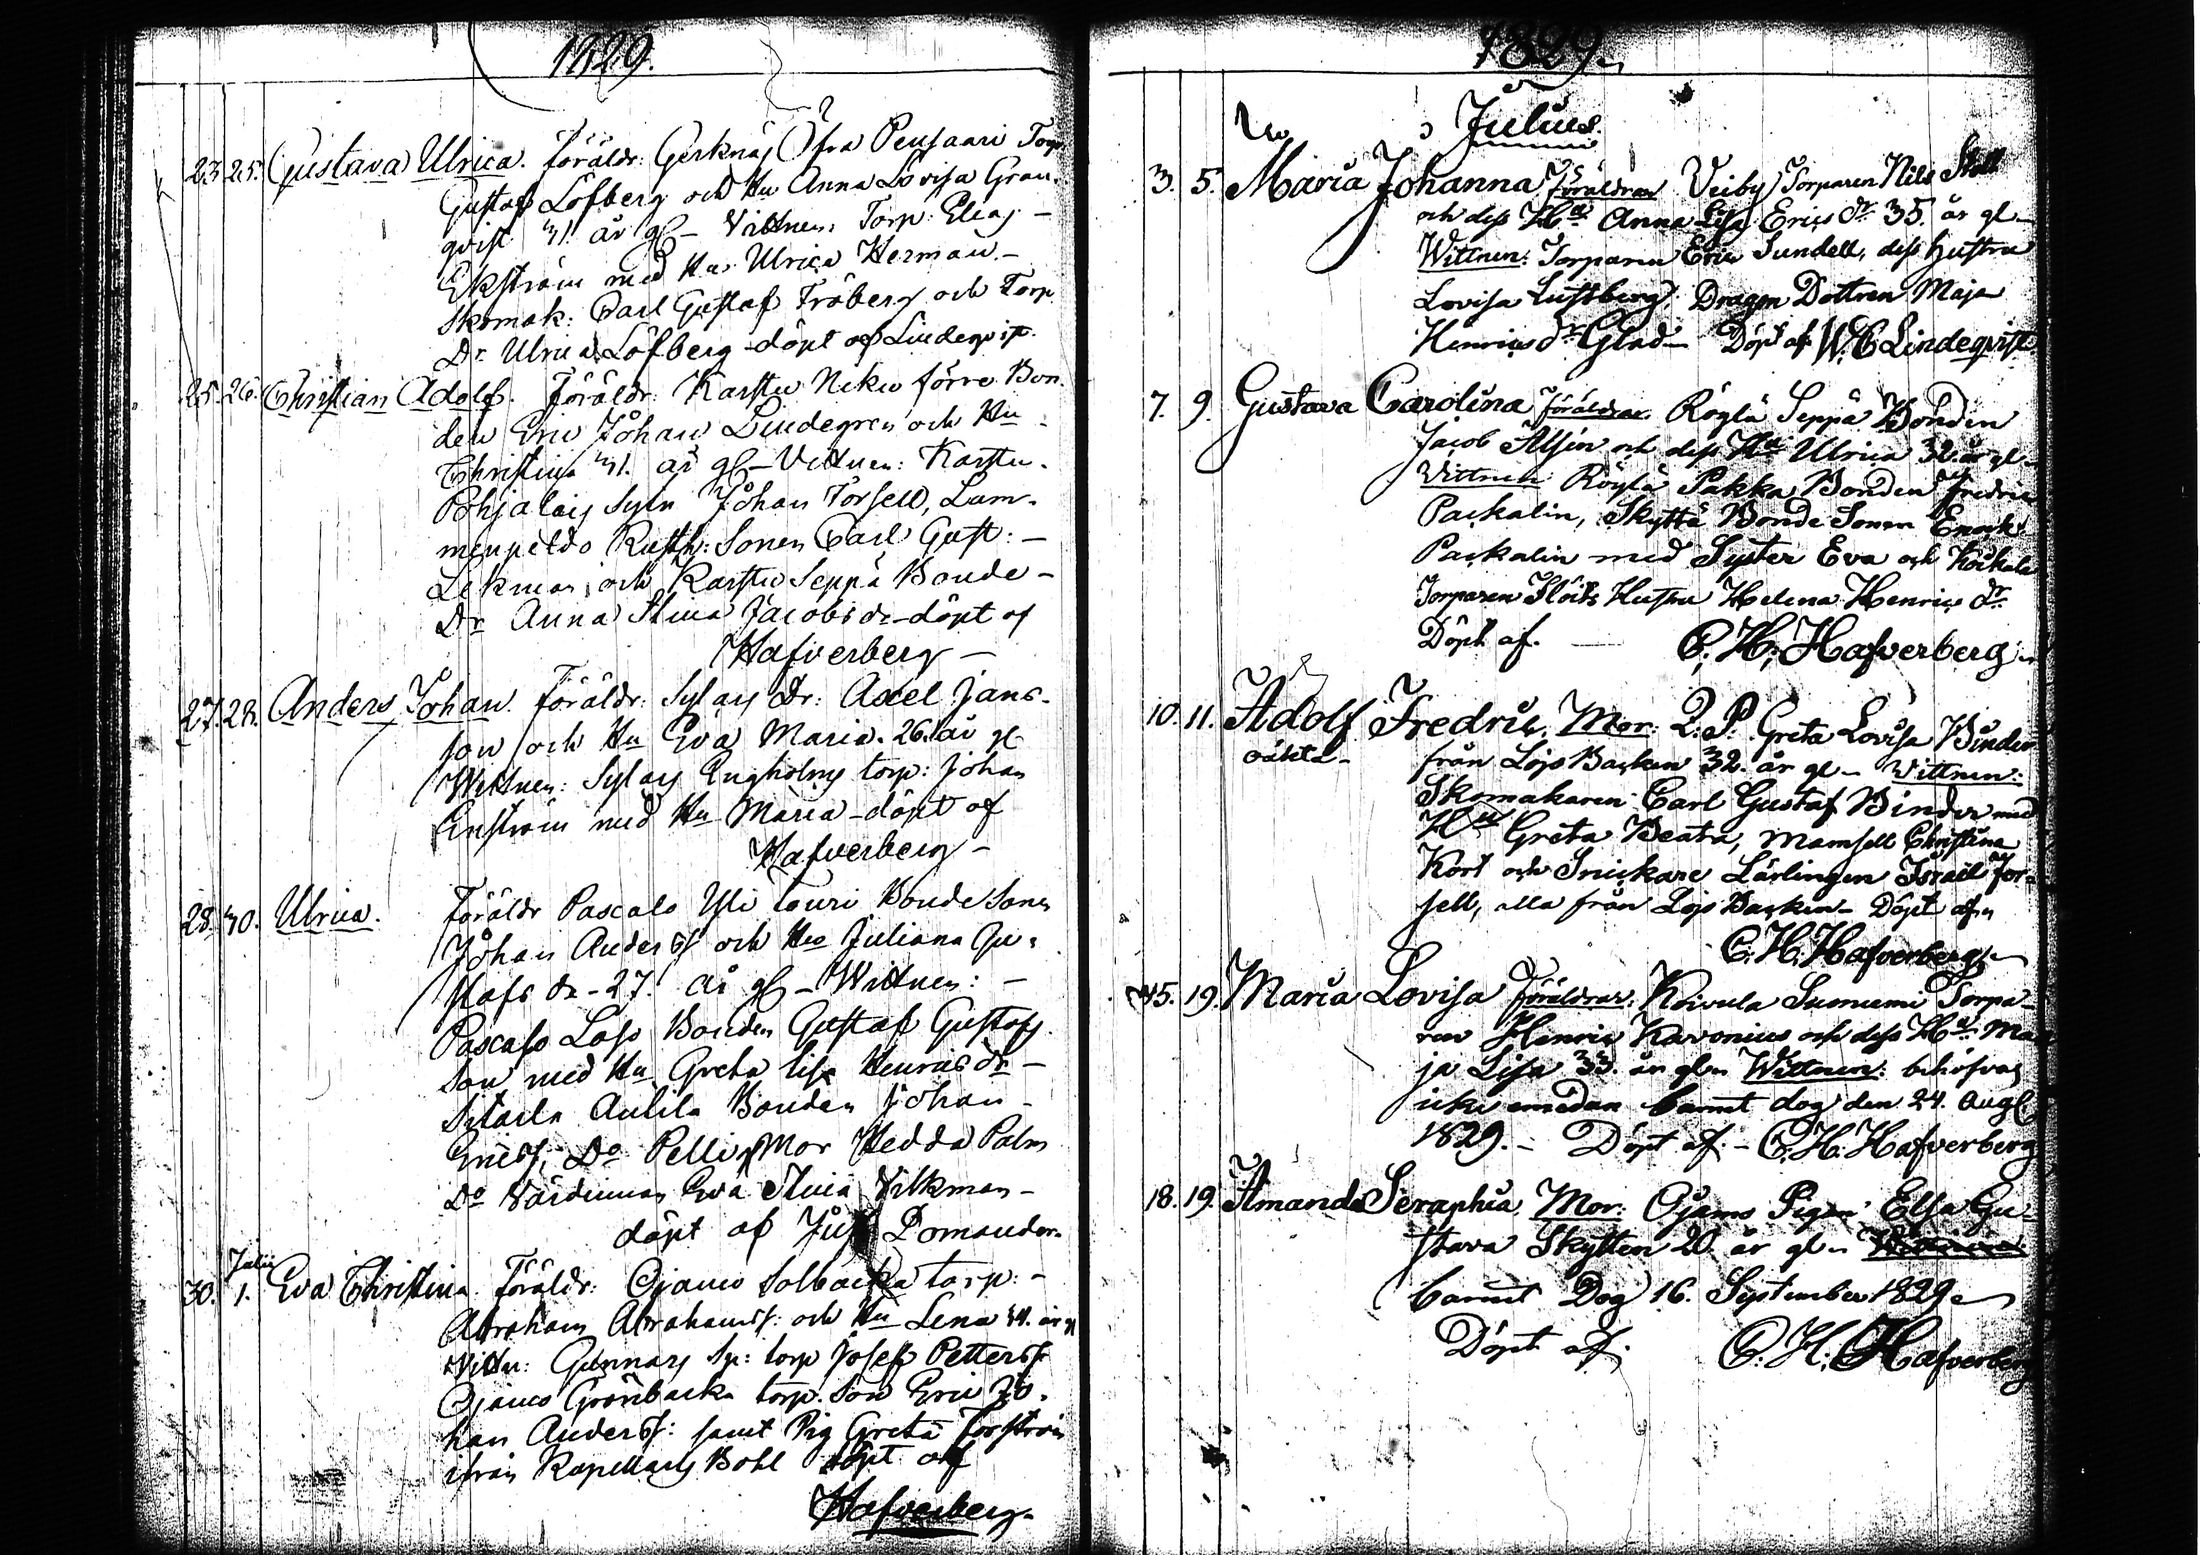 1829.
23. 25. Gustava Ulrica. Föräldr: Gerknäs Öfra Pensaari Torp.
Gustaf Löfberg och Hu Anna Lovisa Gran-
qvist 31. år gl- Vittnen: Torp: Elias
Ekström med Hu Ulrica Herman-
Skomak: Carl Gustaf Fröberg och Torp
Dr. Ulrica Löfberg - döpt af Lindeqvist.
25. 26. Christian Adolf. Föräldr: Karstu Neku förre Bon-
den Eric Johan Lindegren och Hu
Christina 31. år gl- Vittnen: Karstu
Pohjalais Johan Forsell, Lam-
menpeldo Rusth: Sonen Carl Gust: -
Lekman och Karstu Seppä Bonde-
Dr Anna Stina Jacobs dr - döpt af
Hafverberg -
27. 28. Anders Johan. Föräldr: Dr: Axel Jans-
son och Hu Eva Maria. 26. år gl
Wittnen: Engholms torp: Johan
Enström med Hu Maria - döpt af
Hafverberg -
28. 30. Ulrica. Föräldr Pascalo Yli Touri Bonde Sonen
Johan Anderss och Hu Juliana Gu-
stafs dr - 27. år gl - Wittnen: -
Pascalo Laso Bonden Gustaf Gustafs-
son med Hu Greta Lisa Henrics dr -
Anttila Bonden Johan
Ericss, Do Pellis Mor Hedda Palm
Do Värdinnan Eva Stina Vilkman -
döpt af Just Domander.
Julii
30. 1. Eva Christina Föräldr: Ojamo Solbacka torp: -
Abraham Abrahamss: och Hu Lena 44. år gl
Vittn: Gunnars torp Josef Petterss
Ojamo Grönbacka torp. Son Eric Jo-
han Anderss: samt Pig Greta Forström
ifrån Kapellans Bohl döpt af
Hafverberg.
1829.
Julius.
3. 5. Maria Johanna Föräldrar Veiby Torparen Nils
och dess Hu Anna Lisa Erics dr 35. år gl-
Wittnen: Torparen Eric Sundell, dess hustru
Lovisa Luftberg, Dragon Dottren Maja
Henrics dr Glad- Döpt af W. E Lindeqvist.
7. 9. Gustava Carolina Föräldrar. Röylä Seppä Bonden
Jacob Alfén och dess Hu Ulrica 32. år gl-
Vittnen Röylä Pakka Bonden Fredric
Packalin, Skyttä Bonde Sonen Enock
Packalin med Syster Eva och
Torparen Hustru Helena Henrics dr
Döpt af. — C. H. Hafverberg.
10. 11. Adolf Fredric. Mor: Q: P: Greta Lovisa Binder
oäkta- från Lojo Backen 32. år gl- Vittnen:
Skomakaren Carl Gustaf Binder med
Hu Greta Beata, Mamsell Christina
Kort och Snickare Lärlingen Israel For-
sell, alla från Lojo Backen- Döpt af
C. H. Hafverberg
15. 19. Maria Lovisa Föräldrar. Koivula Suniemi Torpa-
ren Henric Karonius och dess Hu Ma
ja Lisa 33. år gl. Wittnen: behöfvas
icke emedan barnet dog den 24. Aug
1829. - Döpt af - C. H. Hafverberg
18. 19. Amanda Seraphia Mor: Ojamo Pigan Elsa Gu-
stava Skytten 20 år gl-
barnet Dog 16. September 1829
Döpt af. C. H. Hafverberg